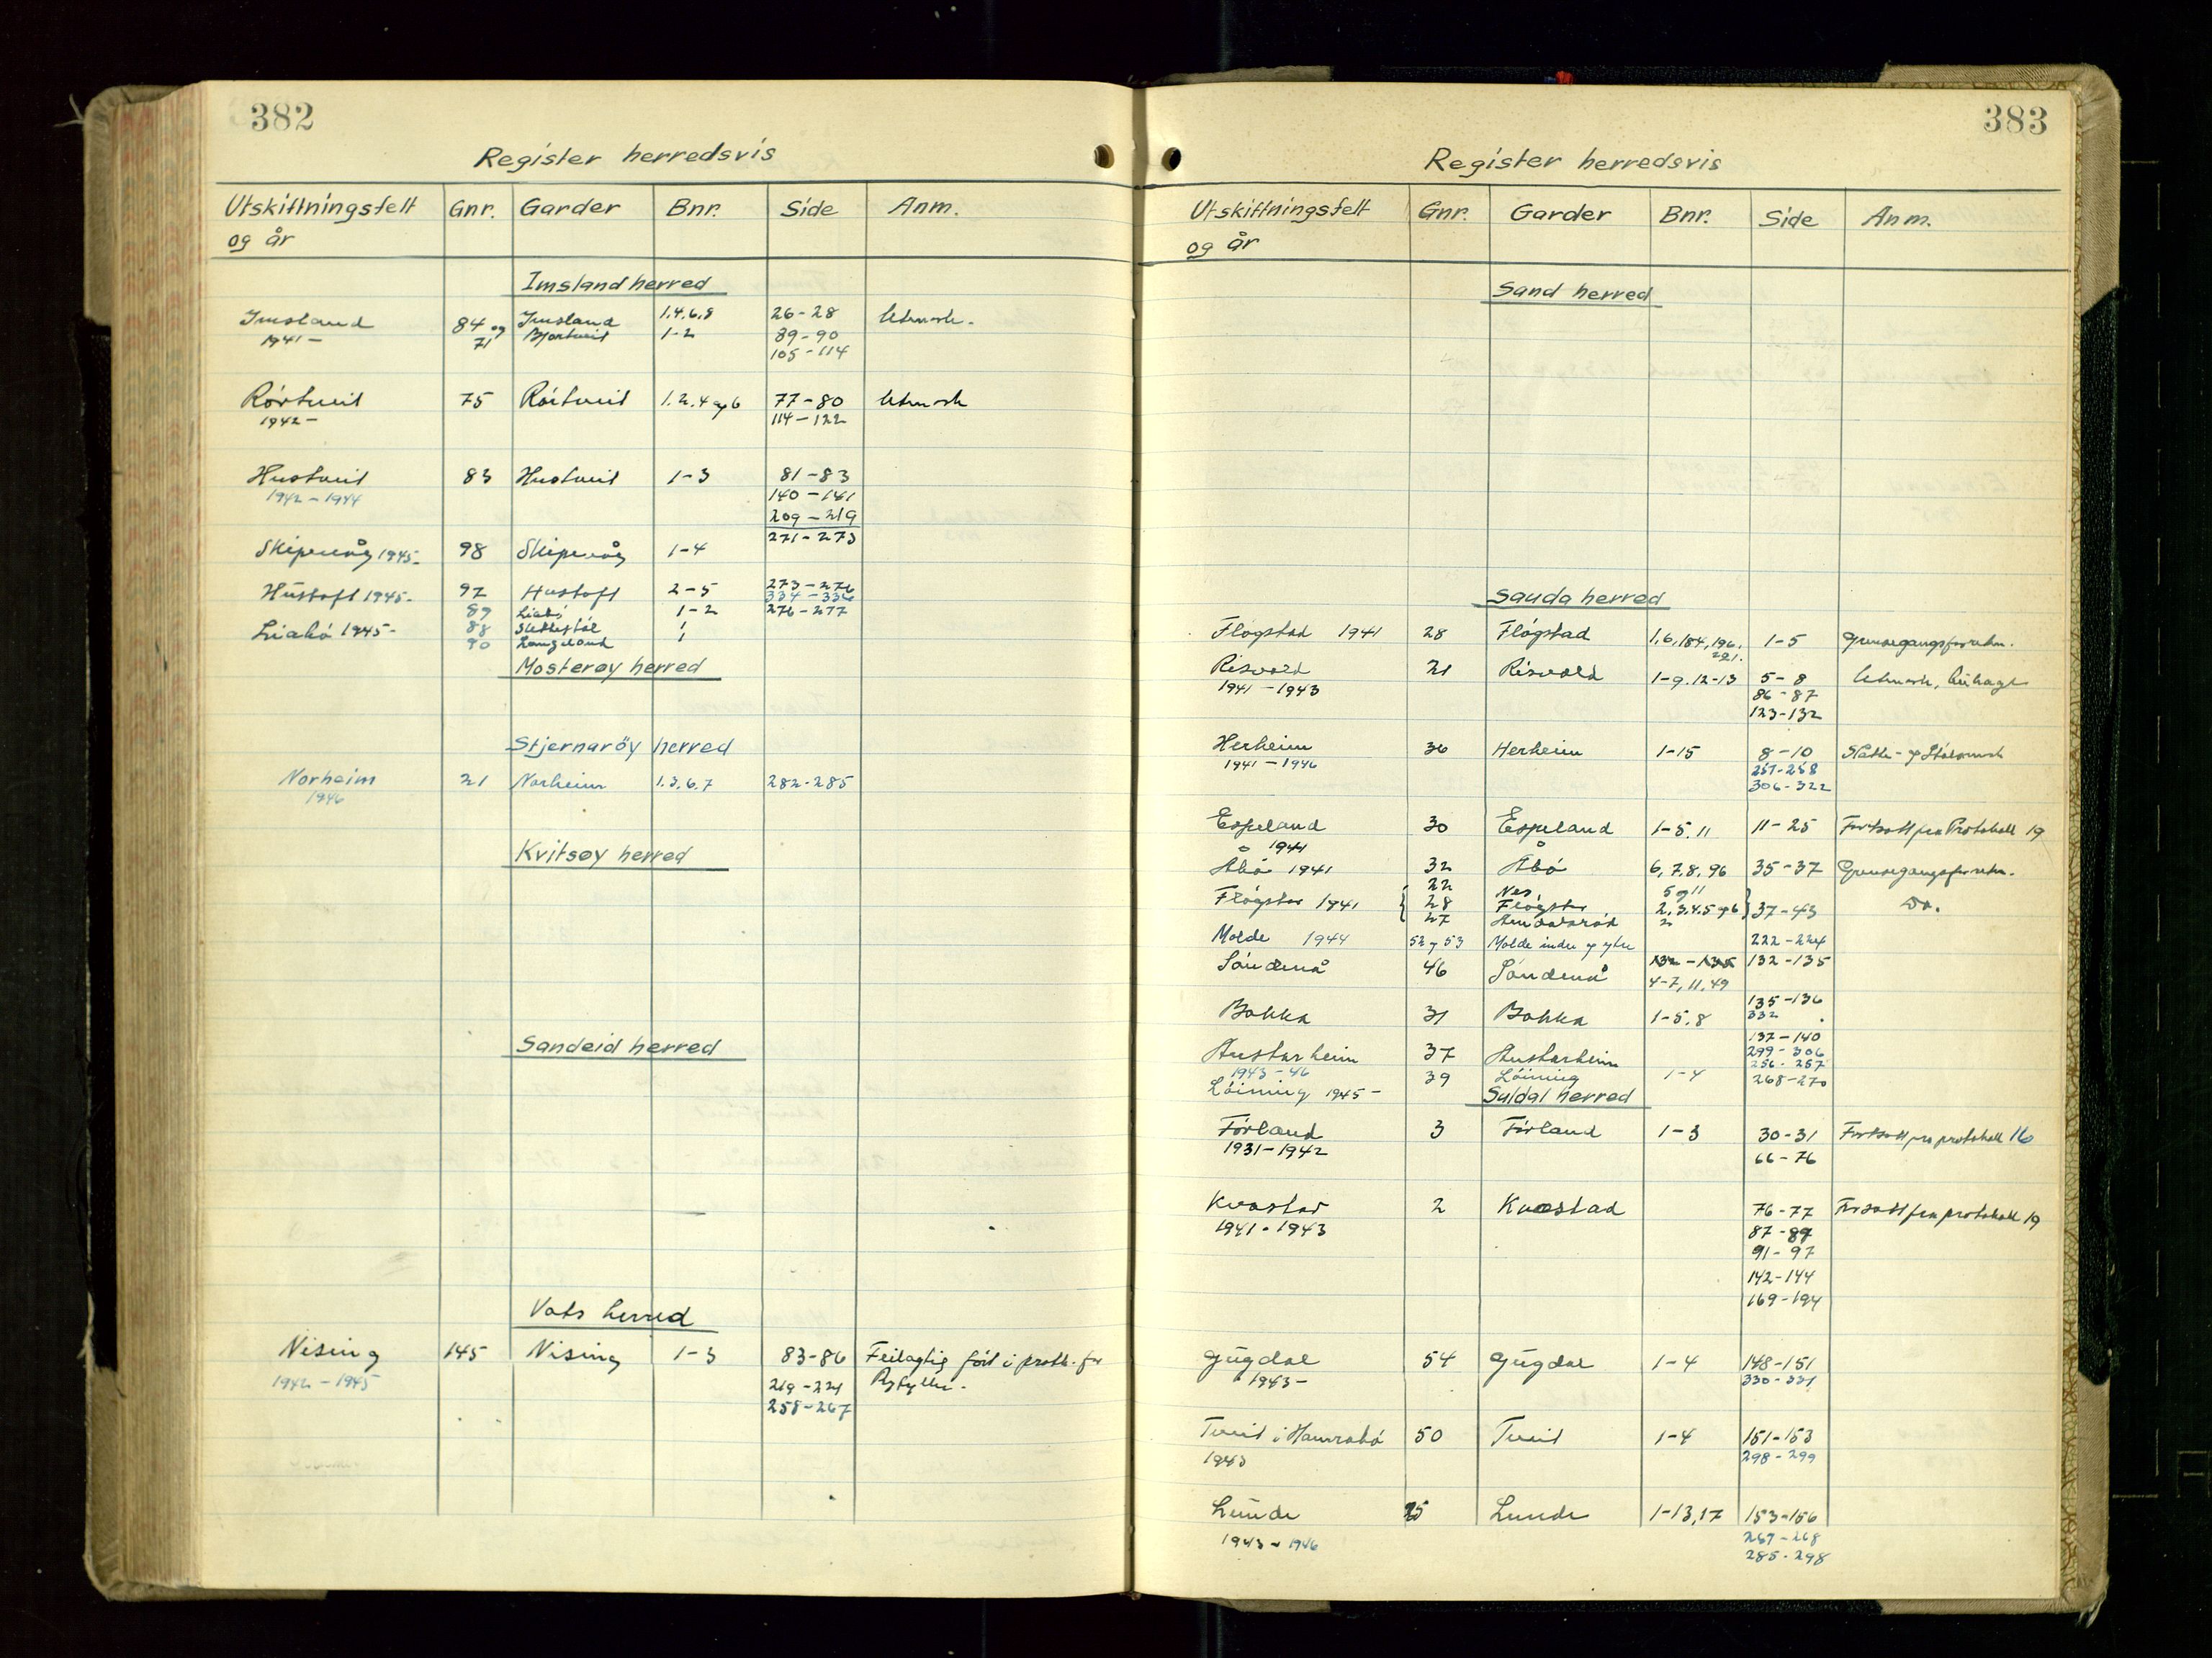 382
Register herredsvis
Utskiftningsfelt og år Gnr. Garder Bnr. Side Anm.
Imsland herred
Imsland 84 og Imsland 1,4,6,8 26-28 Utmark.
1941- 71 1-2 89-90
105-114
Rörtveit 75 Rörtveit 1.2.4 og 6 77-80 Utmark
1942- 114-122
Hustveit 83 Hustveit 1-3 81-83
1942-1944 140-141
209-219
271-273
Skipevåg 1945- 98 Skipevåg 1-4
Hustoft 1945- 97 Hustoft 2-5 273-276
334-336
89 Liabö 1-2 276-277
Liabö 1945- 88 1
90 Langeland 1
Mosterøy herred
Stjernaröy herred
Norheim 21 Norheim 1.3.6.7 282-285
1946
Kvitsøy herred
Sandeid herred
Vats herred
Nising 145 Nising 1-3 83-86 Feilagtig fört i protk. for
1942-1945 219-221 Ryfylke.
258-267
383
Register herredsvis
Utskiftningsfelt og år Gnr. Garder Bnr. Side Anm.
Sand herred
Sauda herred
Flögstad 1941 28 Flögstad 1,6,184,196, 1-5 Grensegangsforretn.
221.
Risvold 21 Risvold 1-9.12-13 5-8 Utmark,
1941-1943 86-87
123-132
Herheim 36 Herheim 1-15 8-10
1941-1946 257-258
306-322
Espeland 30 Espeland 1-5,11 11-25 Fortsatt fra Protokoll 19
1941
Åbö 1941 32 Åbö 6,7,8,96 35-37 Grensegangsforretn.
22 Nes 5 og 11
Flögstad 1941 28 Flögstad 2,3,4.5 og 6 37-43 Do.
27 2
Molde 1944 52 og 53 Molde indre og ytre 222-224
Söndenå 46 Söndenå 132-135 132-135
4-7,11,49
135-136
Bakka 31 Bakka 1-5,8 332
137-140
Austarheim 37 Austarheim 299-306
1943-46 256-257
Löining 1945- 39 Löining 1-4 268-270
Suldal herred
Förland 3 Förland 1-3 30-31 Fortsatt fra protokoll 16
1931-1942 66-76
Kvastad 2 Kvastad 76-77 Forsatt fra protokoll 19
1941-1943 87-89
91-97
142-144
169-194
Gugdal 54 Gugdal 1-4 148-151
1943- 330-331
Tveit i Hamrabö 50 Tveit 1-4 151-153
1943 298-299
Lunde 25 Lunde 1-13,17 153-156
1943-1946 267-268
285-298